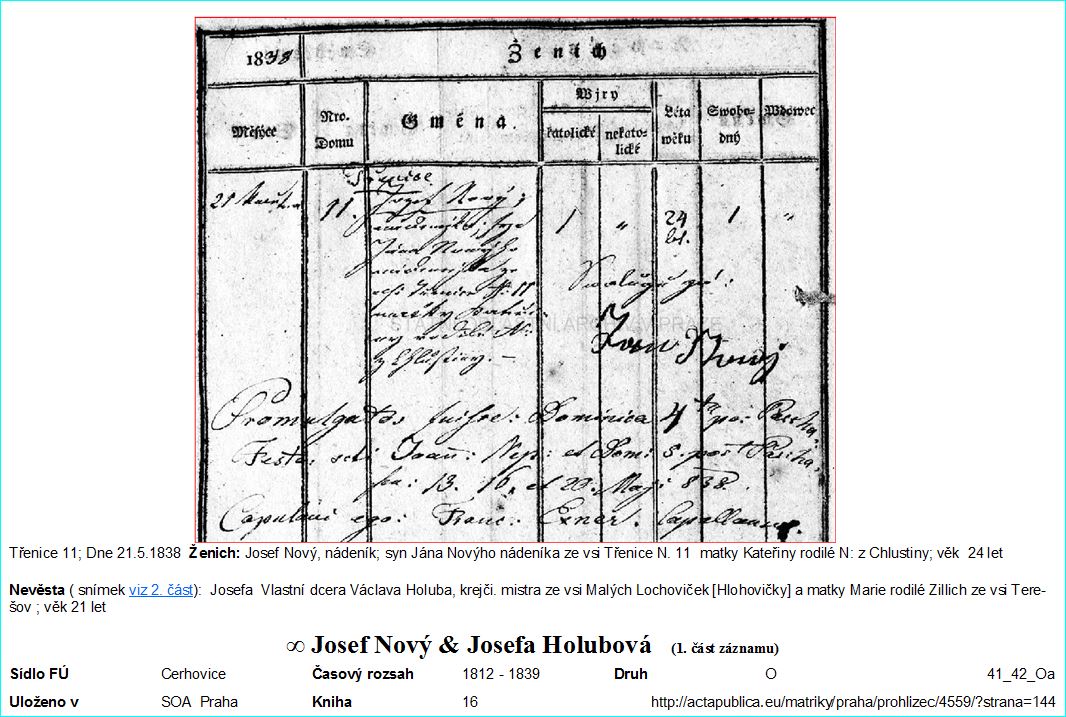 1838 Ženich
Měsýce
Nro. Domu
Gména
Wjry
katolické
nekato-
lické
Léta
wěku
Swobo-
dný
Wdowec
Třenice
21
11.
Jozef Nowý;
1
„
24
let.
1
„
nádeník; syn
Jána Nowýho
nádenjka ze
wsi Třenice N: 11
matky Kateři-
ny rodilé N:
z Chlustiny. –
STÁTNÍ OBLASTNÍ ARCHIV V PRAZE
Jan Nowý
Promulgatos fuisse: Dominica 4ta post Pascha:
Festo: scti Joan: Nep: et Dom: 5. post Pascha,
13. 16. et 20. Maji 838.
Copulavi ego: Franc: Exner. Capellanus.
Třenice 11; Dne 21.5.1838 Ženich: Josef Nový, nádeník; syn Jána Novýho nádeníka ze vsi Třenice N. 11 matky Kateřiny rodilé N: z Chlustiny; věk 24 let
Nevěsta ( snímek viz 2. část): Josefa Vlastní dcera Václava Holuba, krejči. mistra ze vsi Malých Lochoviček [Hlohovičky] a matky Marie rodilé Zillich ze vsi Tere-
šov ; věk 21 let
∞ Josef Nový & Josefa Holubová (1. část záznamu)
Sídlo FÚ Cerhovice Časový rozsah 1812 - 1839 Druh O 41_42_Oa
Uloženo v SOA Praha Kniha 16 http://actapublica.eu/matriky/praha/prohlizec/4559/?strana=144